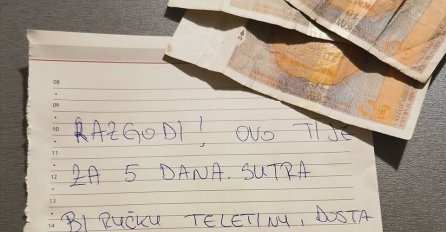 08
09
10
RAZGODI! OVO TI JE
11
12
ZA 5 DANA. SUTRA
13
14
BI RUČKU TELETINU, DOSTA